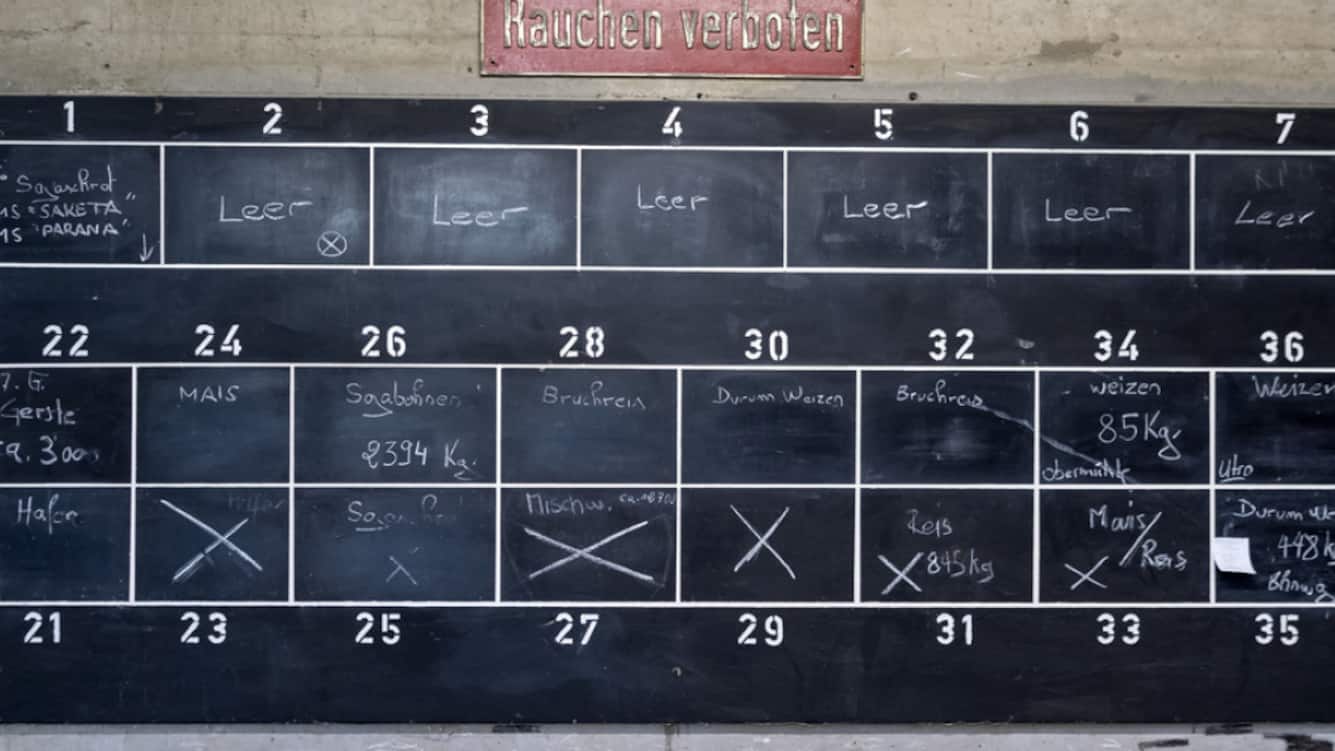 Rauchen verboten
1 2 3 4 5 6 7
Sojaschrot
MS "SAKETA"
MS "PARANA"
Leer
Leer
Leer
Leer
Leer
Leer
22 24 26 28 30 32 34 36
Gerste
ca. 3'000
MAIS
Sojabohnen
2394 Kg.
Bruchreis
Durum Weizen
Bruchreis
weizen
85 Kg.
obermühle
Weizen
Hafer
Mischw.
Reis
845 kg
Mais/
Reis
Durum
448 k
21 23 25 27 29 31 33 35